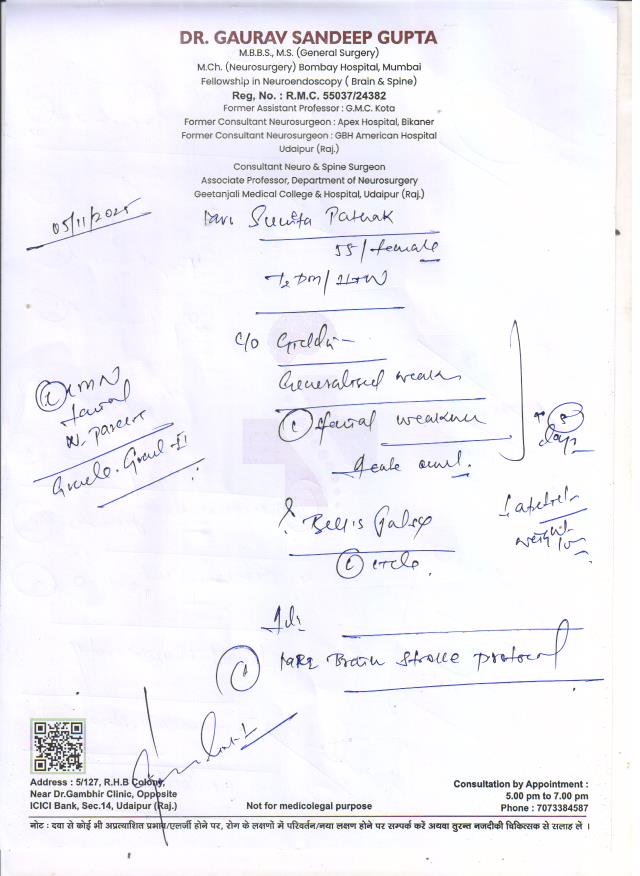 DR. GAURAV SANDEEP GUPTA
M.B.B.S., M.S. (General Surgery)
M.Ch. (Neurosurgery) Bombay Hospital, Mumbai
Fellowship in Neuroendoscopy ( Brain & Spine)
Reg, No. : R.M.C. 55037/24382
Former Assistant Professor : G.M.C. Kota
Former Consultant Neurosurgeon : Apex Hospital, Bikaner
Former Consultant Neurosurgeon : GBH American Hospital
Udaipur (Raj.)
Consultant Neuro & Spine Surgeon
Associate Professor, Department of Neurosurgery
Geetanjali Medical College & Hospital, Udaipur (Raj.)
05/11/2025
Sunita Pathak
55/female
T2DM/HTN
c/o
Generalised weak
facial weakness
5 days
LMN
facial
Bell's Palsy
weight
Brain Stroke protocol
Address : 5/127, R.H.B Colony,
Near Dr.Gambhir Clinic, Opposite
ICICI Bank, Sec.14, Udaipur (Raj.)
Not for medicolegal purpose
Consultation by Appointment :
5.00 pm to 7.00 pm
Phone : 7073384587
नोट : दवा से कोई भी अप्रत्याशित प्रभाव/एलर्जी होने पर, रोग के लक्षणों में परिवर्तन/नया लक्षण होने पर सम्पर्क करें अथवा तुरन्त नजदीकी चिकित्सक से सलाह लें ।